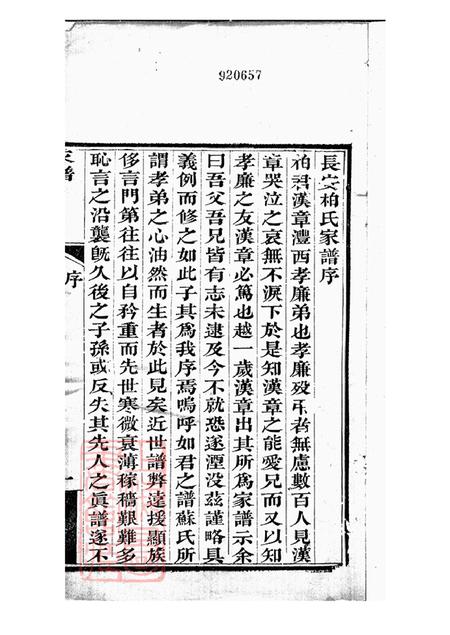 920657
長安柏氏家譜序
柏君漢章灃西孝廉弟也孝廉歿弔者無慮數百人見漢
章哭泣之哀無不淚下於是知漢章之能愛兄而又以知
孝廉之友漢章必篤也越一歲漢章出其所爲家譜示余
曰吾父吾兄皆有志未逮及今不就恐遂湮没茲謹略具
義例而修之如此子其爲我序焉嗚呼如君之譜蘇氏所
謂孝弟之心油然而生者於此見矣近世譜弊遠援顯族
侈言門第往往以自矜重而先世寒微衰薄稼穡艱難多
恥言之沿襲旣久後之子孫或反失其先人之眞譜遂不
家譜
序
一